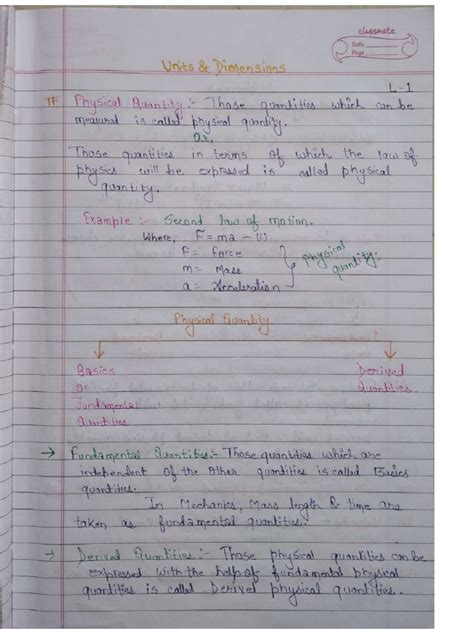 classmate
Date
Page
Units & Dimensions
L-1
# Physical Quantity :- Those quantities which can be
measured is called physical quantity.
Or,
Those quantities in terms of which the law of
physics will be expressed is called physical
quantity.
Example :- Second law of motion.
Where, F = ma - (i)
F = force
m = Mass
a = Acceleration
Physical
quantity.
Physical Quantity
Basics
or
Fundamental
Quantities
Derived
Quantities.
→ Fundamental Quantities:- Those quantities which are
independent of the other quantities is called Basics
quantities.
In Mechanics, Mass length & time are
taken as fundamental quantities.
→ Derived Quantities:- Those physical quantities can be
expressed with the help of fundamental physical
quantities is called Derived physical quantities.